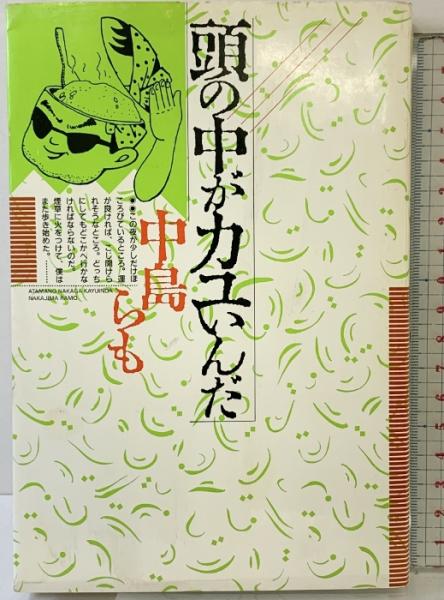 頭の中がカユいんだ
中島らも
●●この夜が少しだけほ
ころびているところ。運
が良ければ、こじ開けら
れそうなところ。どっち
にしてもどこかへ行かな
ければならないのだ。
煙草に火をつけて、僕は
また歩き始めた。……
ATAMANO NAKAGA KAYUINDA
NAKAJIMA RAMO